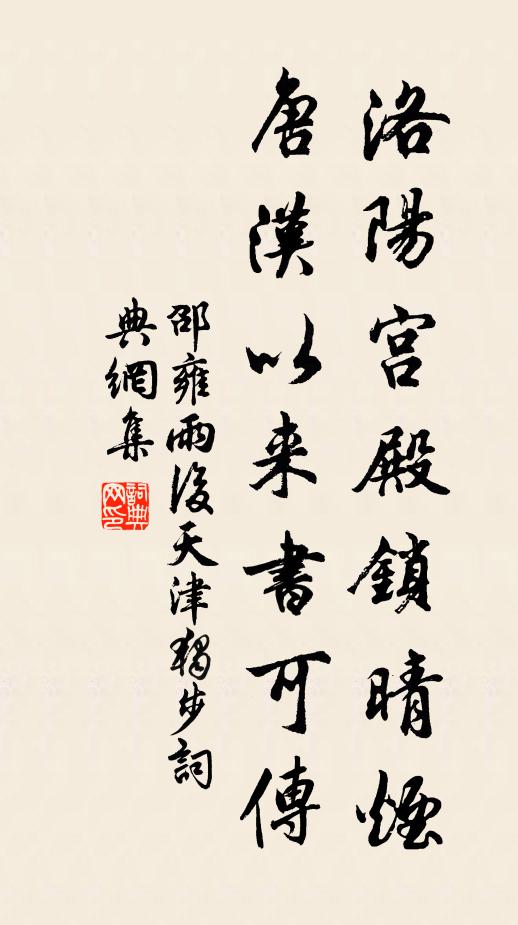 洛陽宮殿鎖晴煙
唐漢以来書可傳
邵雍雨後天津獨步詞
典網集
詞典
网印